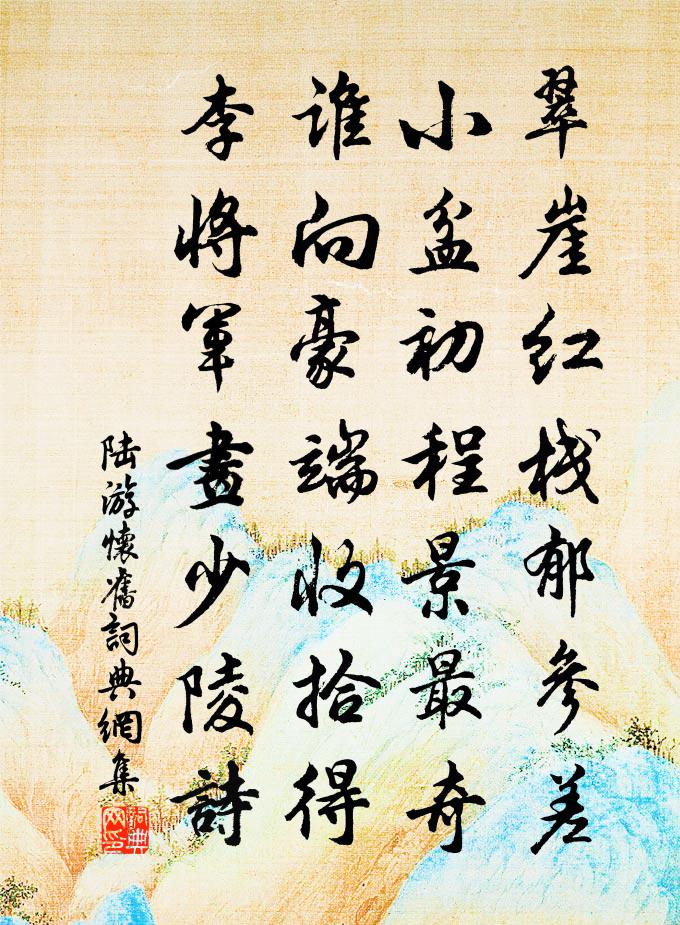 翠崖红栈郁参差
小盆初程景最奇
谁向豪端收拾得
李将军画少陵诗
陆游怀旧词典网集
词典网印